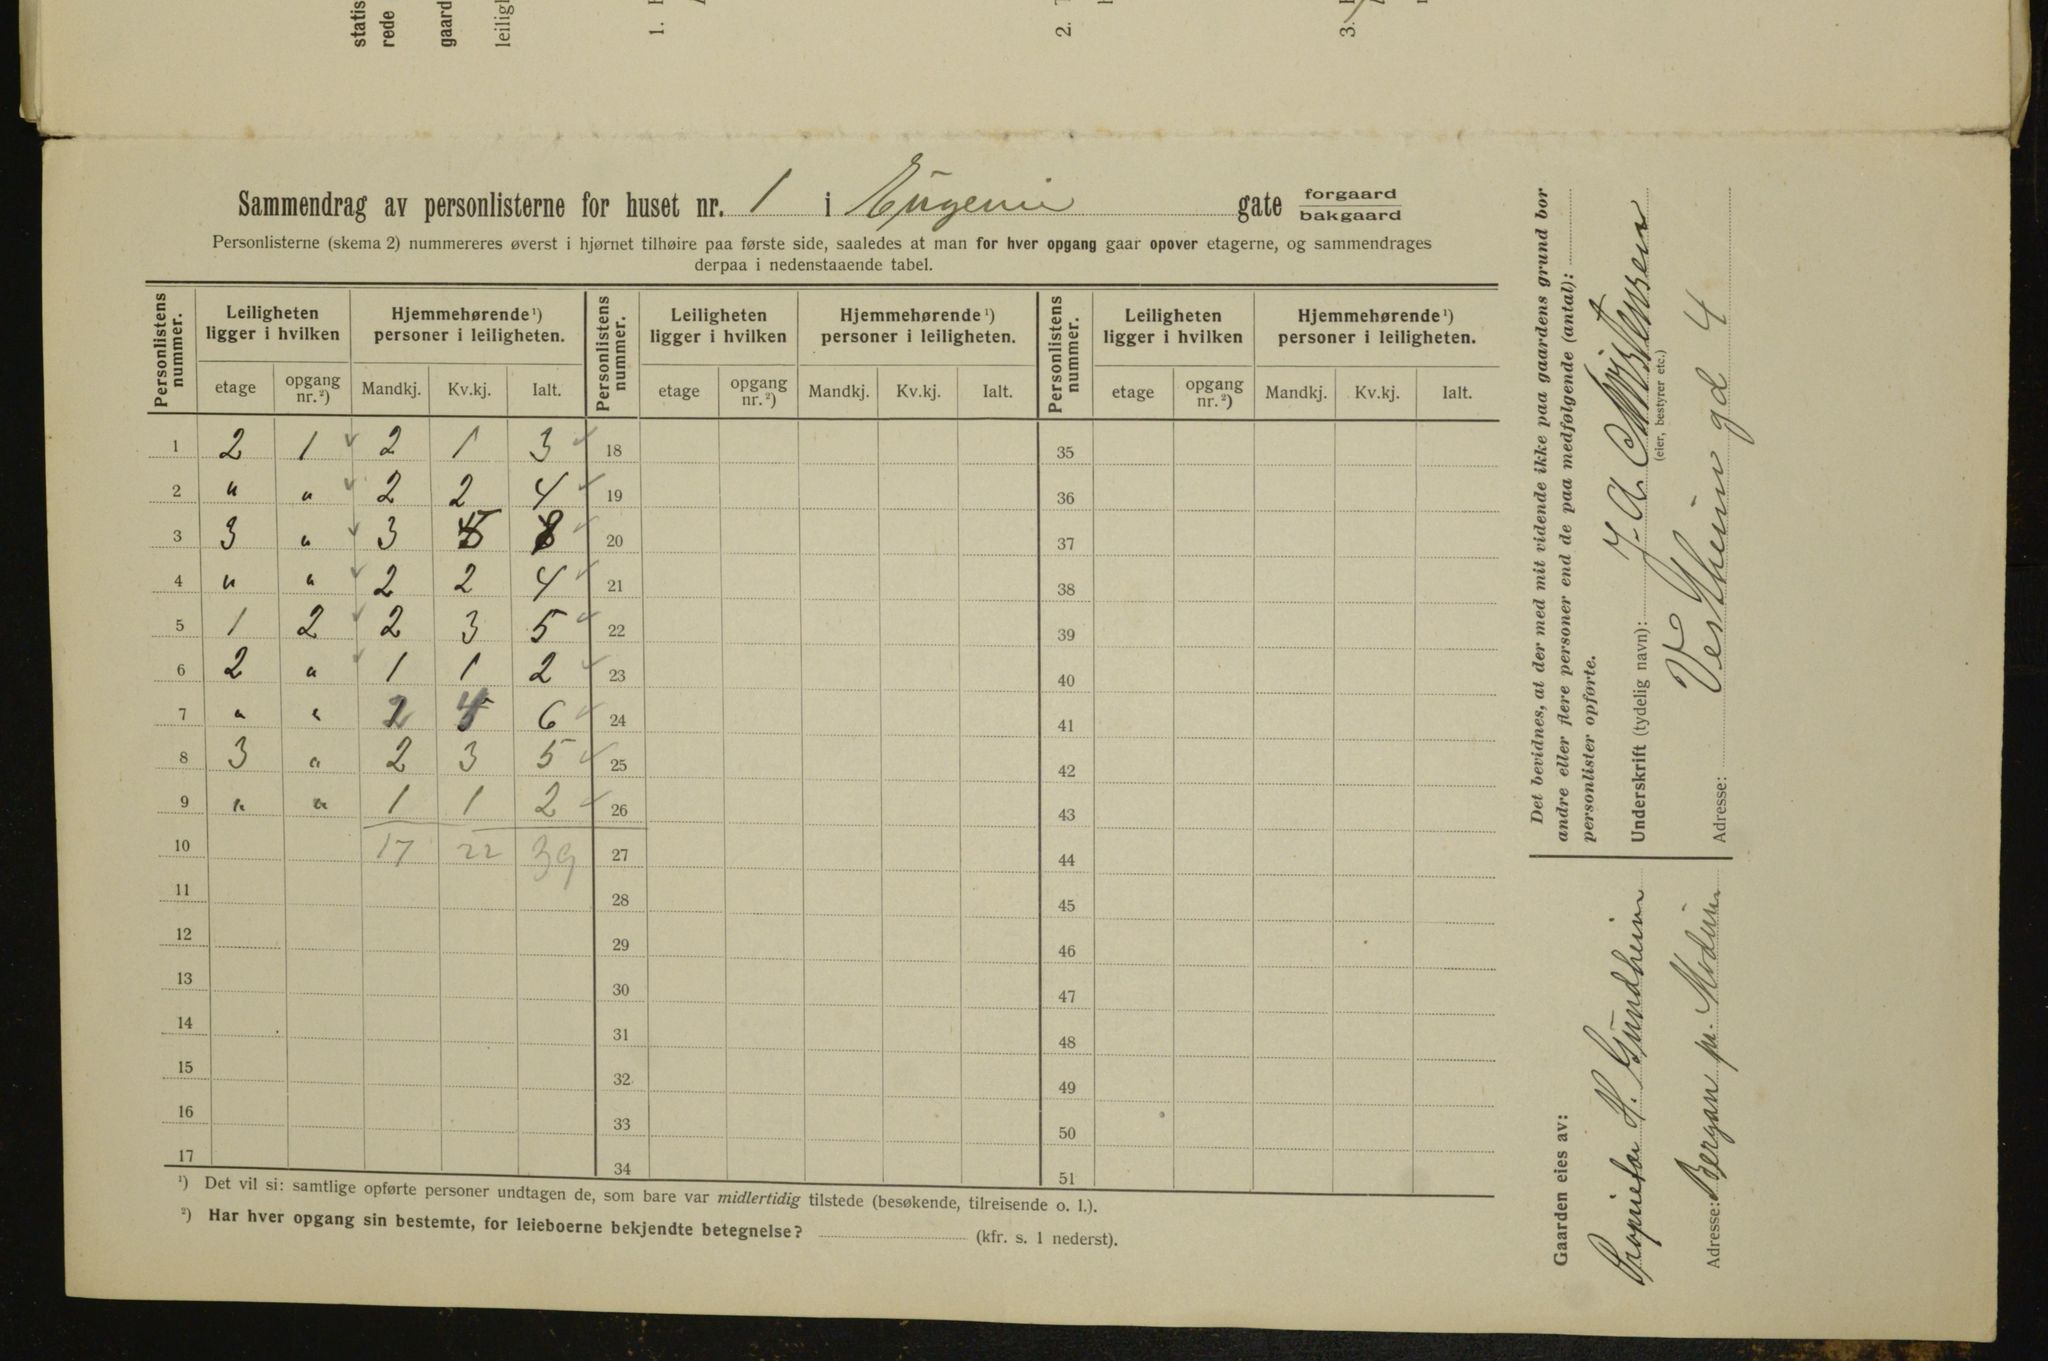 statis
rede
gaard
leiligh
1.
2.
3.
Sammendrag av personlisterne for huset nr. 1 i Eugenie gate forgaard
bakgaard
Personlisterne (skema 2) nummereres øverst i hjørnet tilhøire paa første side, saaledes at man for hver opgang gaar opover etagerne, og sammendrages
derpaa i nedenstaaende tabel.
Personlistens nummer. Leiligheten ligger i hvilken Hjemmehørende ¹) personer i leiligheten. Personlistens nummer. Leiligheten ligger i hvilken Hjemmehørende ¹) personer i leiligheten. Personlistens nummer. Leiligheten ligger i hvilken Hjemmehørende ¹) personer i leiligheten.
etage opgang nr.²) Mandkj. Kv.kj. Ialt. etage opgang nr.²) Mandkj. Kv.kj. Ialt. etage opgang nr.²) Mandkj. Kv.kj. Ialt.
1 2 1 2 1 3 18 35
2 " " 2 2 4 19 36
3 3 " 3 5 8 20 37
4 " " 2 2 4 21 38
5 1 2 2 3 5 22 39
6 2 " 1 1 2 23 40
7 " " 2 4 6 24 41
8 3 " 2 3 5 25 42
9 " " 1 1 2 26 43
10 17 22 39 27 44
11 28 45
12 29 46
13 30 47
14 31 48
15 32 49
16 33 50
17 34 51
¹) Det vil si: samtlige opførte personer undtagen de, som bare var midlertidig tilstede (besøkende, tilreisende o. l.).
²) Har hver opgang sin bestemte, for leieboerne bekjendte betegnelse? (kfr. s. 1 nederst).
Det bevidnes, at der med mit vidende ikke paa gaardens grund bor
andre eller flere personer end de paa medfølgende (antal):
personlister opførte.
Underskrift (tydelig navn): J. A. Christensen
(eier, bestyrer etc.)
Adresse: Vestheim gd 4
Gaarden eies av:
Proprietær H. Gundheim
Adresse: Bergan pr. Modum